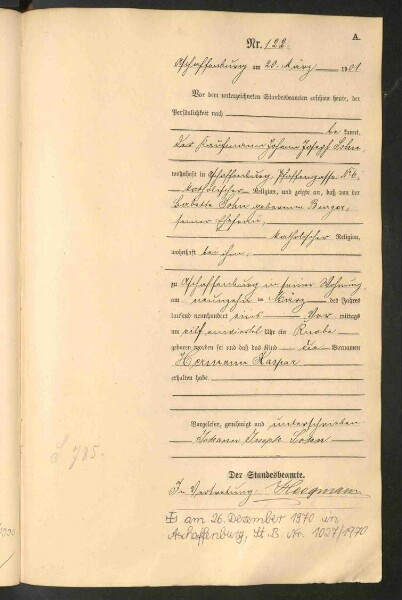 A.
Nr. 122.
Aschaffenburg am 20. März 1901
Vor dem unterzeichneten Standesbeamten erschien heute, der
Persönlichkeit nach
be kannt,
der Kaufmann Johann Joseph
wohnhaft in Aschaffenburg, Pfaffengasse No 6,
katholischer Religion, und zeigte an, daß von der
Babette geborenen Burger,
seiner Ehefrau,
katholischer Religion,
wohnhaft bei ihm,
zu Aschaffenburg in seiner Wohnung
am neunzehnten März des Jahres
tausend neunhundert eins Vor mittags
um elf einviertel Uhr ein Knabe
geboren worden sei und daß das Kind die Vornamen
Hermann Kaspar
erhalten habe.
Vorgelesen, genehmigt und unterschrieben
Johann Joseph
Der Standesbeamte.
In Vertretung:
am 26. Dezember 1970 in
Aschaffenburg, St. B. Nr. 1027/1970